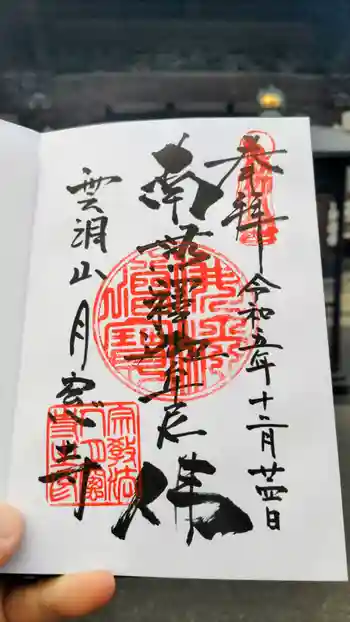 奉拝
令和五年十二月廿四日
南無釋迦牟尼佛
雲涓山
月窓寺
佛法僧寶